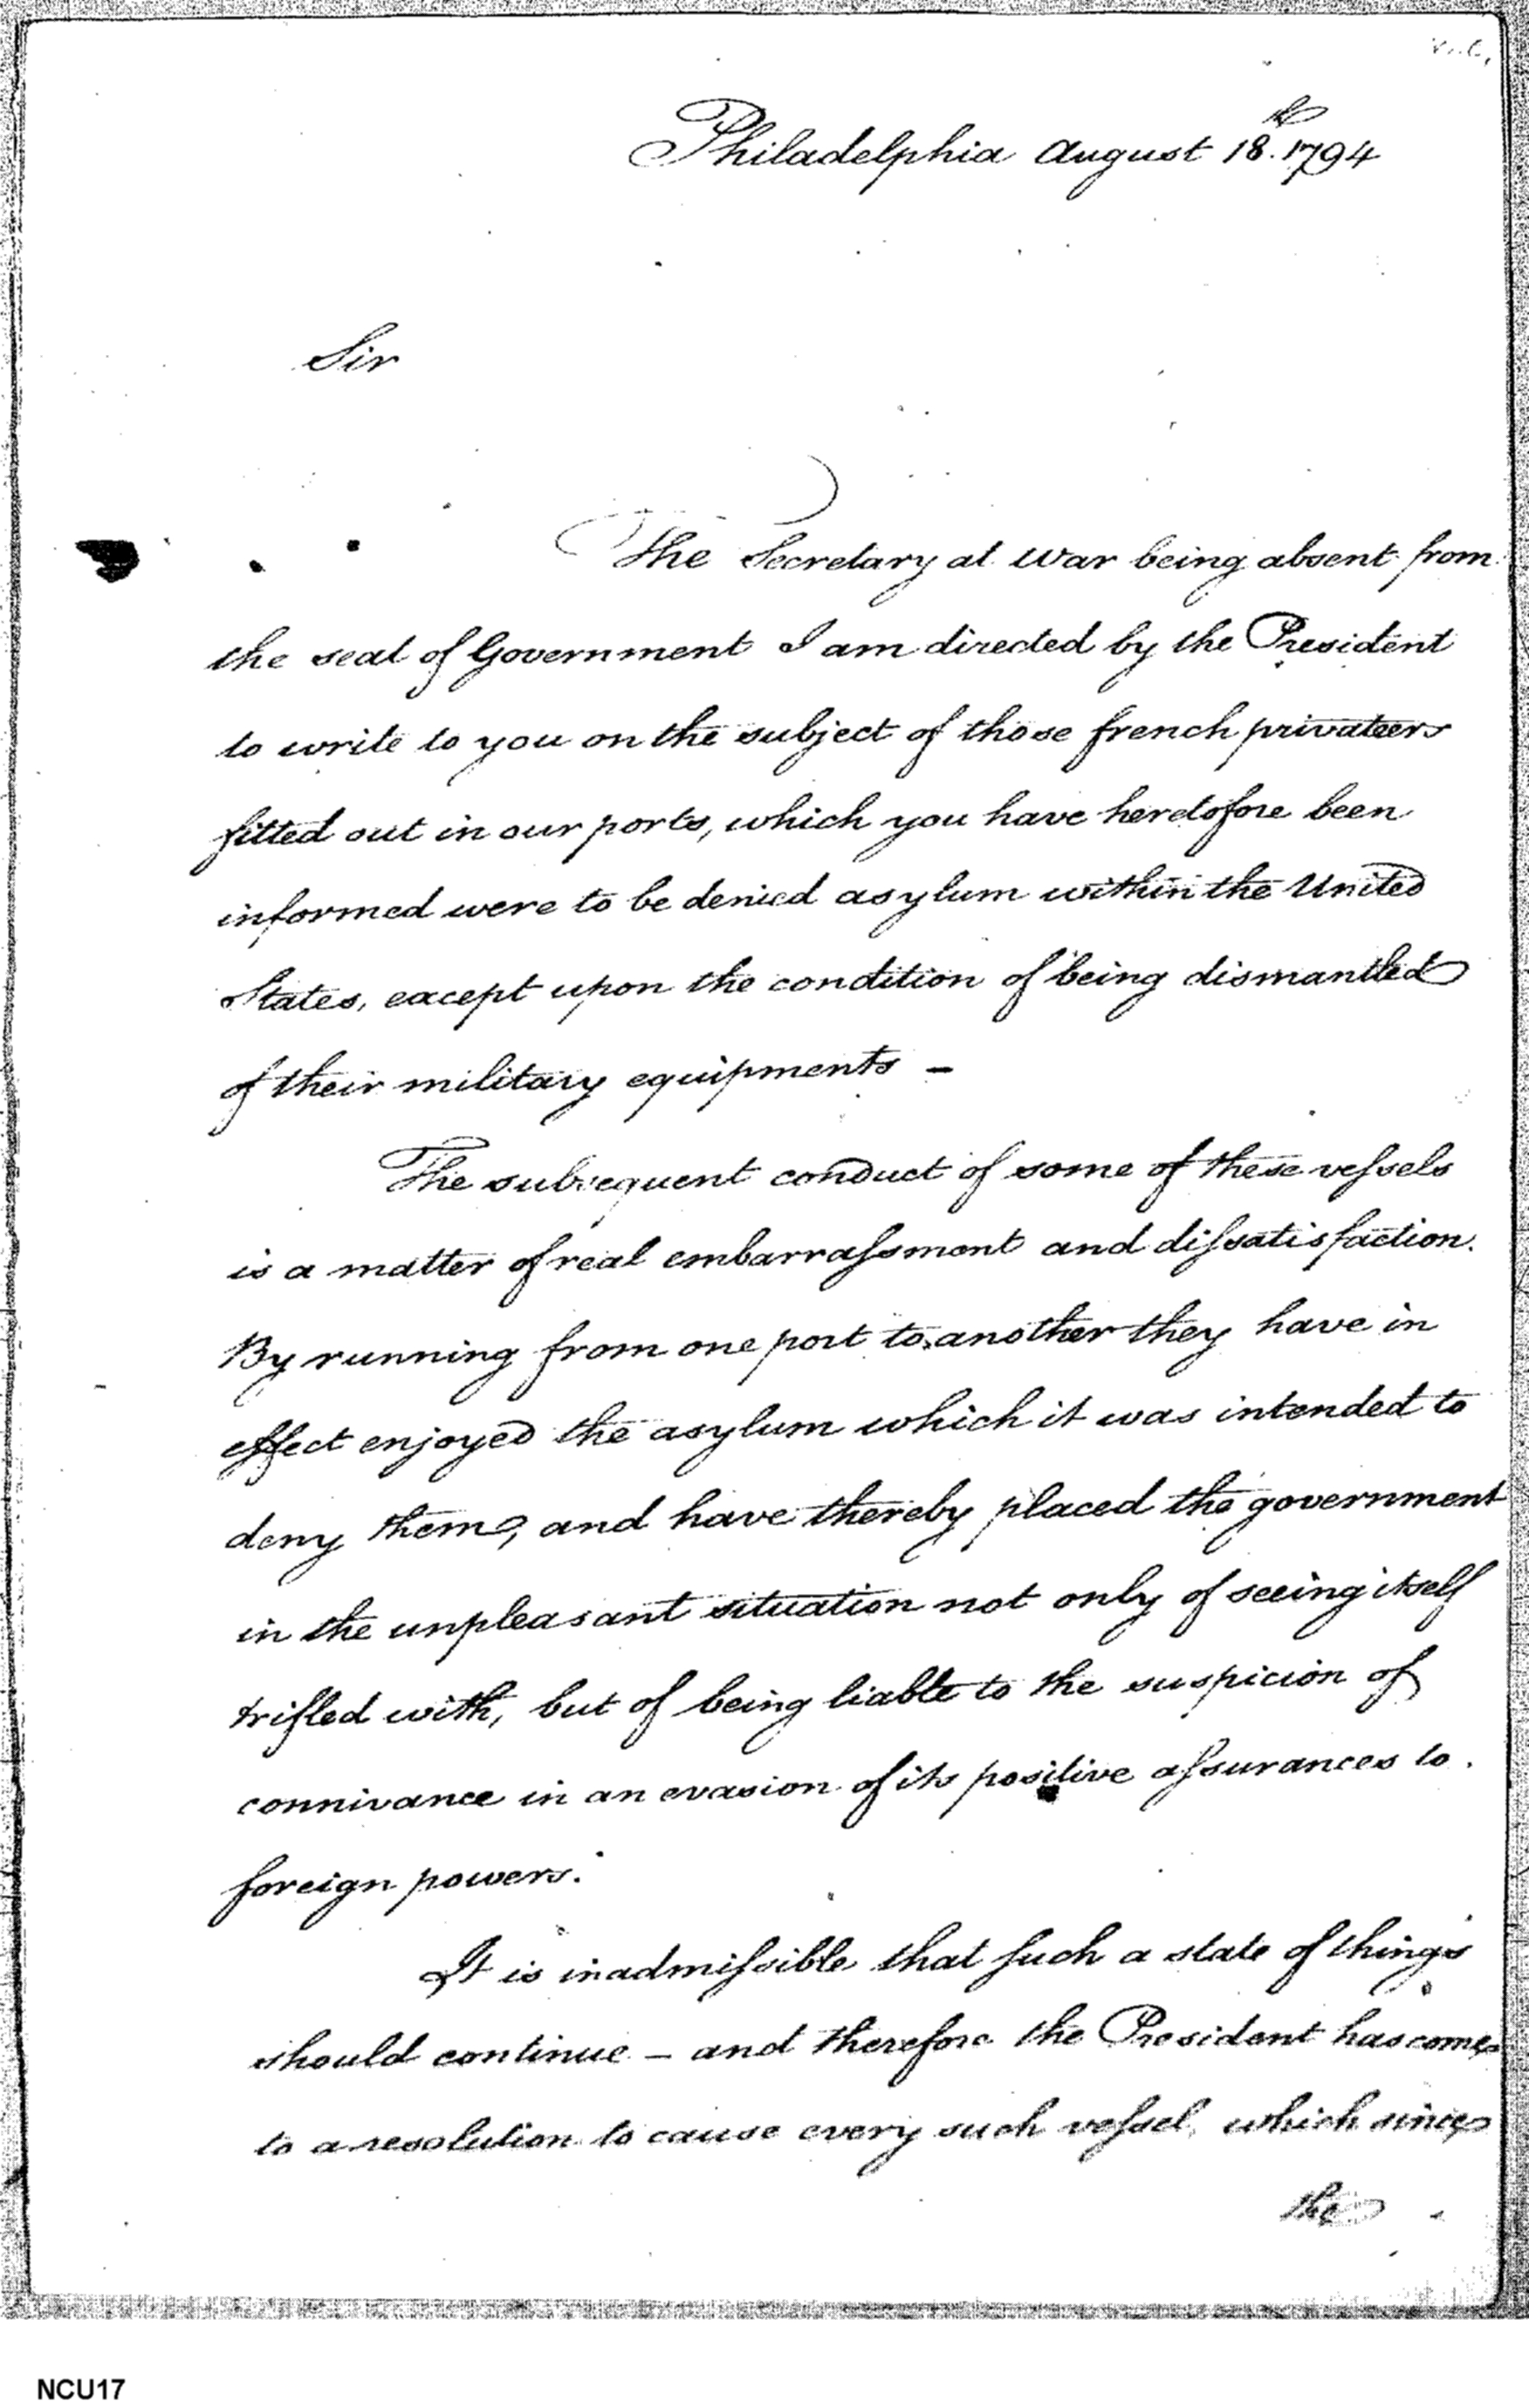 Philadelphia August 18th. 1794
Sir
The Secretary at War being absent from
the seat of Government I am directed by the President
to write to you on the subject of those french privateers
fitted out in our ports, which you have heretofore been
informed were to be denied asylum within the United
States, except upon the condition of being dismantled
of their military equipments –
The subsequent conduct of some of these vessels
is a matter of real embarrassment and dissatisfaction.
By running from one port to another they have in
effect enjoyed the asylum which it was intended to
deny them, and have thereby placed the government
in the unpleasant situation not only of seeing itself
trifled with, but of being liable to the suspicion of
connivance in an evasion of its positive assurances to
foreign powers.
It is inadmissible that such a state of things
should continue – and therefore the President has come
to a resolution to cause every such vessel, which since
the
NCU17